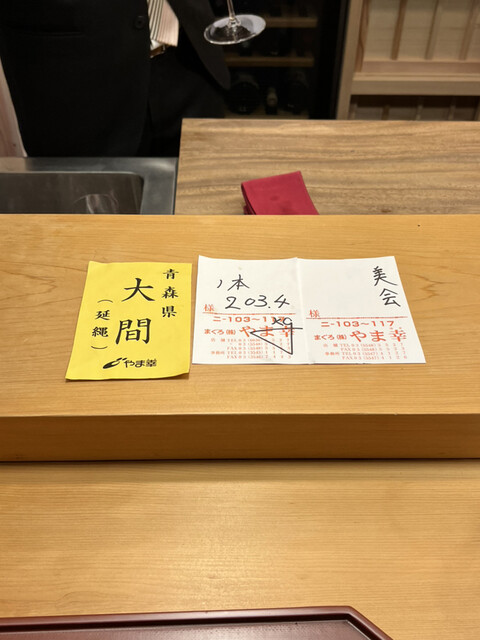 青森県
大間
(延縄)
やま幸
1本
203.4
kg
様
ニ-103~117
まぐろ(株)やま幸
美会
様
ニ-103~117
まぐろ(株)やま幸